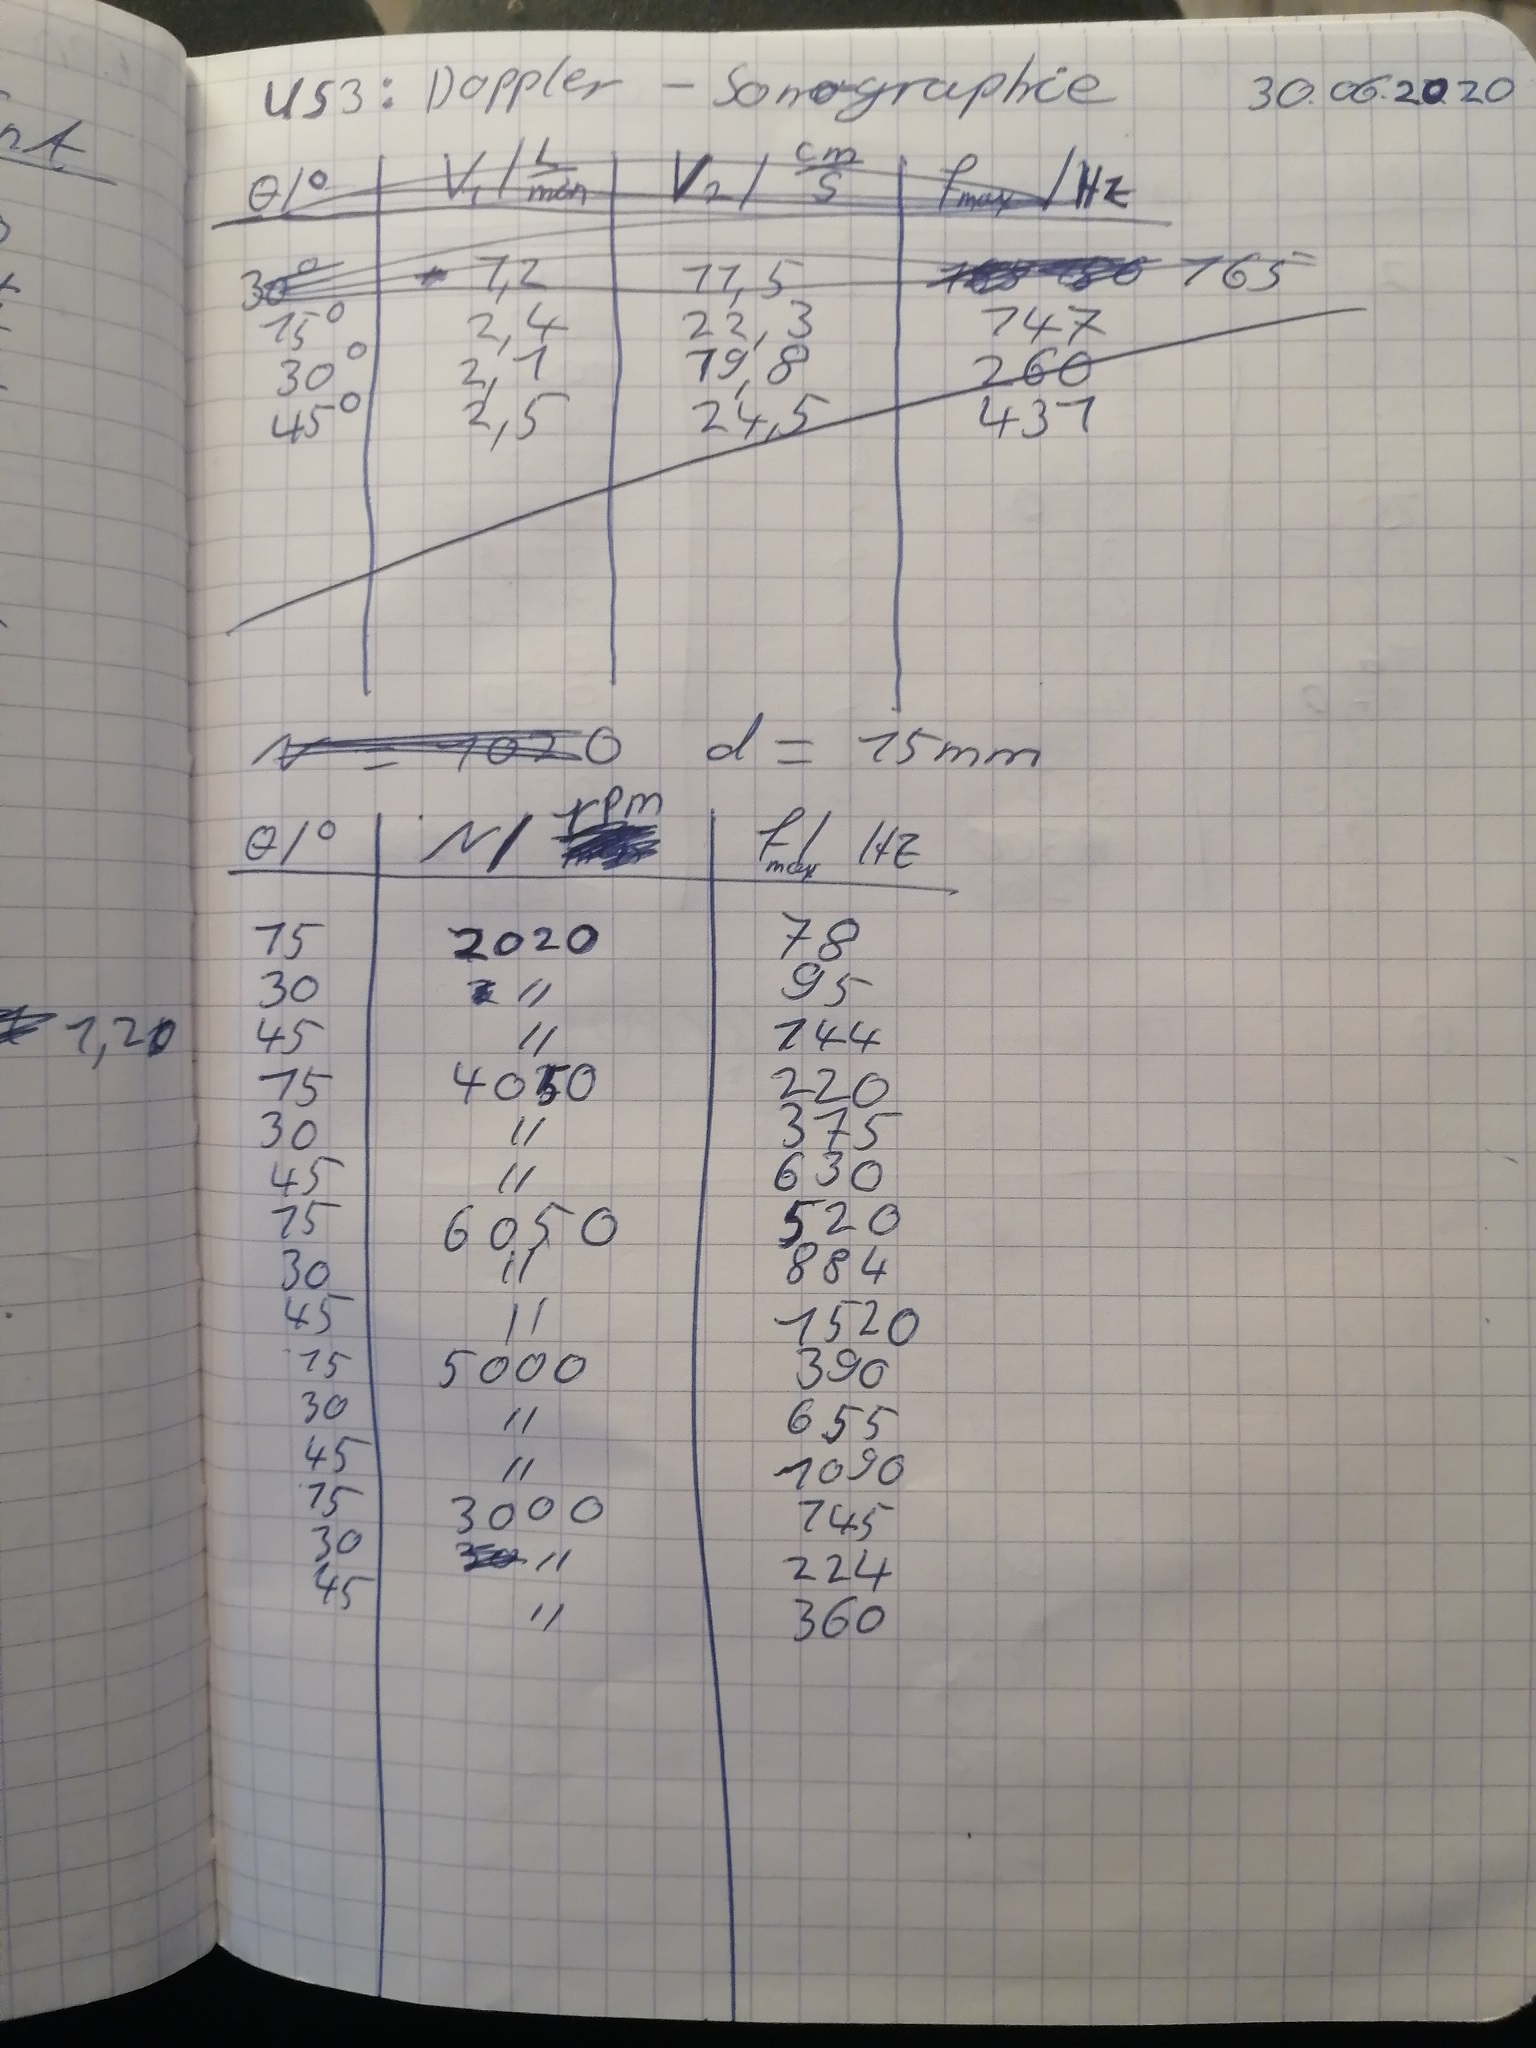 US3: Doppler - Sonographie 30.06.2020
θ/° V₁/ L/min V₂/ cm/s fmax/Hz
30° 1,2 11,5 165
15° 2,4 22,3 147
30° 2,1 19,8 260
45° 2,5 24,5 431
N = 1020 d = 15mm
θ/° N/ rpm fmax/ Hz
15 2020 78
30 " 95
45 " 144
15 4050 220
30 " 375
45 " 630
15 6050 520
30 " 884
45 " 1520
15 5000 390
30 " 655
45 " 1090
15 3000 145
30 " 224
45 " 360
1,20